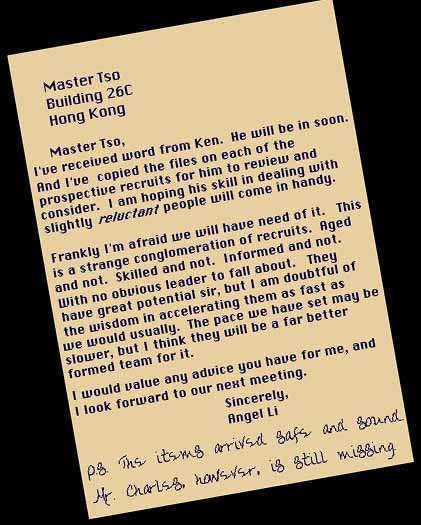 Master Tso
Building 26C
Hong Kong
Master Tso,
I've received word from Ken. He will be in soon.
And I've copied the files on each of the
prospective recruits for him to review and
consider. I am hoping his skill in dealing with
slightly reluctant people will come in handy.
Frankly I'm afraid we will have need of it. This
is a strange conglomeration of recruits. Aged
and not. Skilled and not. Informed and not.
With no obvious leader to fall about. They
have great potential sir, but I am doubtful of
the wisdom in accelerating them as fast as
we would usually. The pace we have set may be
slower, but I think they will be a far better
formed team for it.
I would value any advice you have for me, and
I look forward to our next meeting.
Sincerely,
Angel Li
ps. The items arrived safe and sound
Mr. Charles, however, is still missing